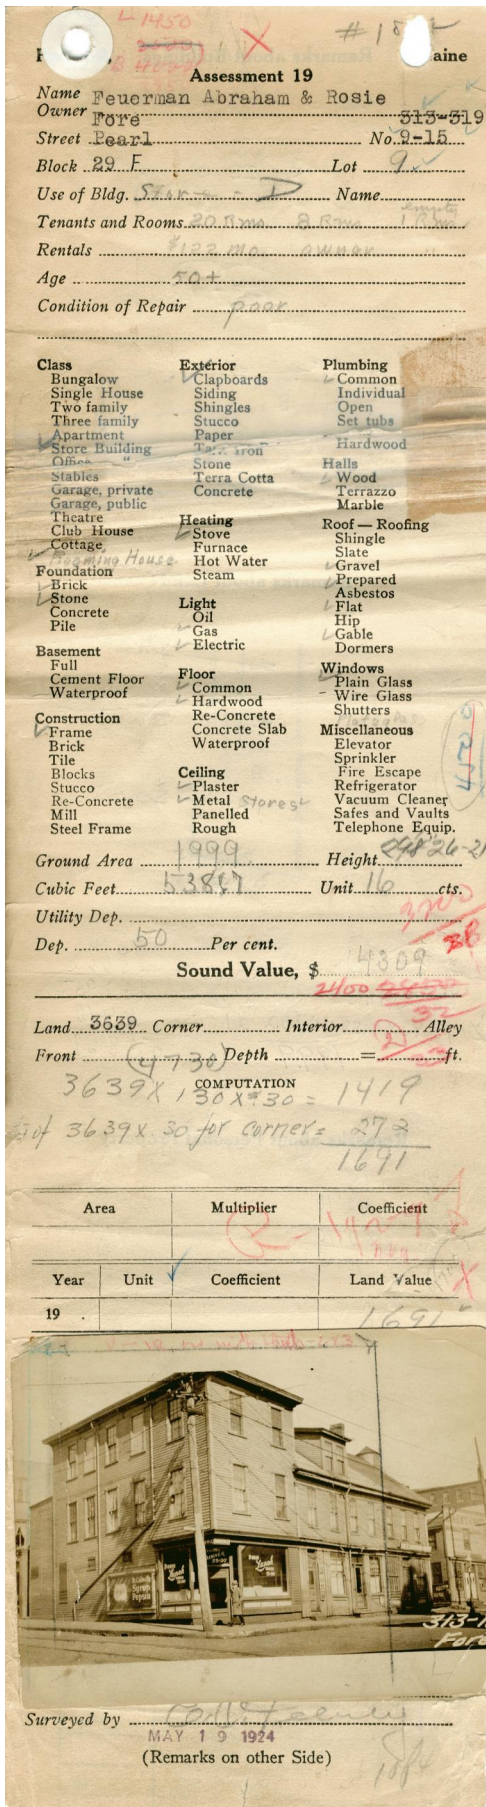 L 1450
X
# 18
aine
Assessment 19
Name Feuerman Abraham & Rosie
Owner
Fore 313-319
Street Pearl No. 9-15
Block 29 F Lot 9
Use of Bldg. Stores - D Name
empty
Tenants and Rooms 20 Rms 8 Rms 1 Rms
Rentals $122 mo. owner "
Age 50+
Condition of Repair poor
Class
Bungalow
Single House
Two family
Three family
Apartment
Store Building
Office "
Stables
Garage, private
Garage, public
Theatre
Club House
Cottage
Roaming House
Foundation
Brick
Stone
Concrete
Pile
Basement
Full
Cement Floor
Waterproof
Construction
Frame
Brick
Tile
Blocks
Stucco
Re-Concrete
Mill
Steel Frame
Exterior
Clapboards
Siding
Shingles
Stucco
Paper
Iron
Stone
Terra Cotta
Concrete
Heating
Stove
Furnace
Hot Water
Steam
Light
Oil
Gas
Electric
Floor
Common
Hardwood
Re-Concrete
Concrete Slab
Waterproof
Ceiling
Plaster
Metal Stores
Panelled
Rough
Plumbing
Common
Individual
Open
Set tubs
Hardwood
Halls
Wood
Terrazzo
Marble
Roof — Roofing
Shingle
Slate
Gravel
Prepared
Asbestos
Flat
Hip
Gable
Dormers
Windows
Plain Glass
Wire Glass
Shutters
Miscellaneous
Elevator
Sprinkler
Fire Escape
Refrigerator
Vacuum Cleaner
Safes and Vaults
Telephone Equip.
Ground Area 1999 Height
Cubic Feet Unit 16 cts.
Utility Dep.
Dep. 50 Per cent.
Sound Value, $ 4309
2400
Land 3639 Corner Interior Alley
Front (4730) Depth = ft.
COMPUTATION
3639 X 130 X .30 = 1419
of 3639 X 30 for corner = 272
1691
Area Multiplier Coefficient
Year Unit Coefficient Land Value
19 1691
Syrup
Pepsin
313-1
Fore
Surveyed by
MAY 19 1924
(Remarks on other Side)